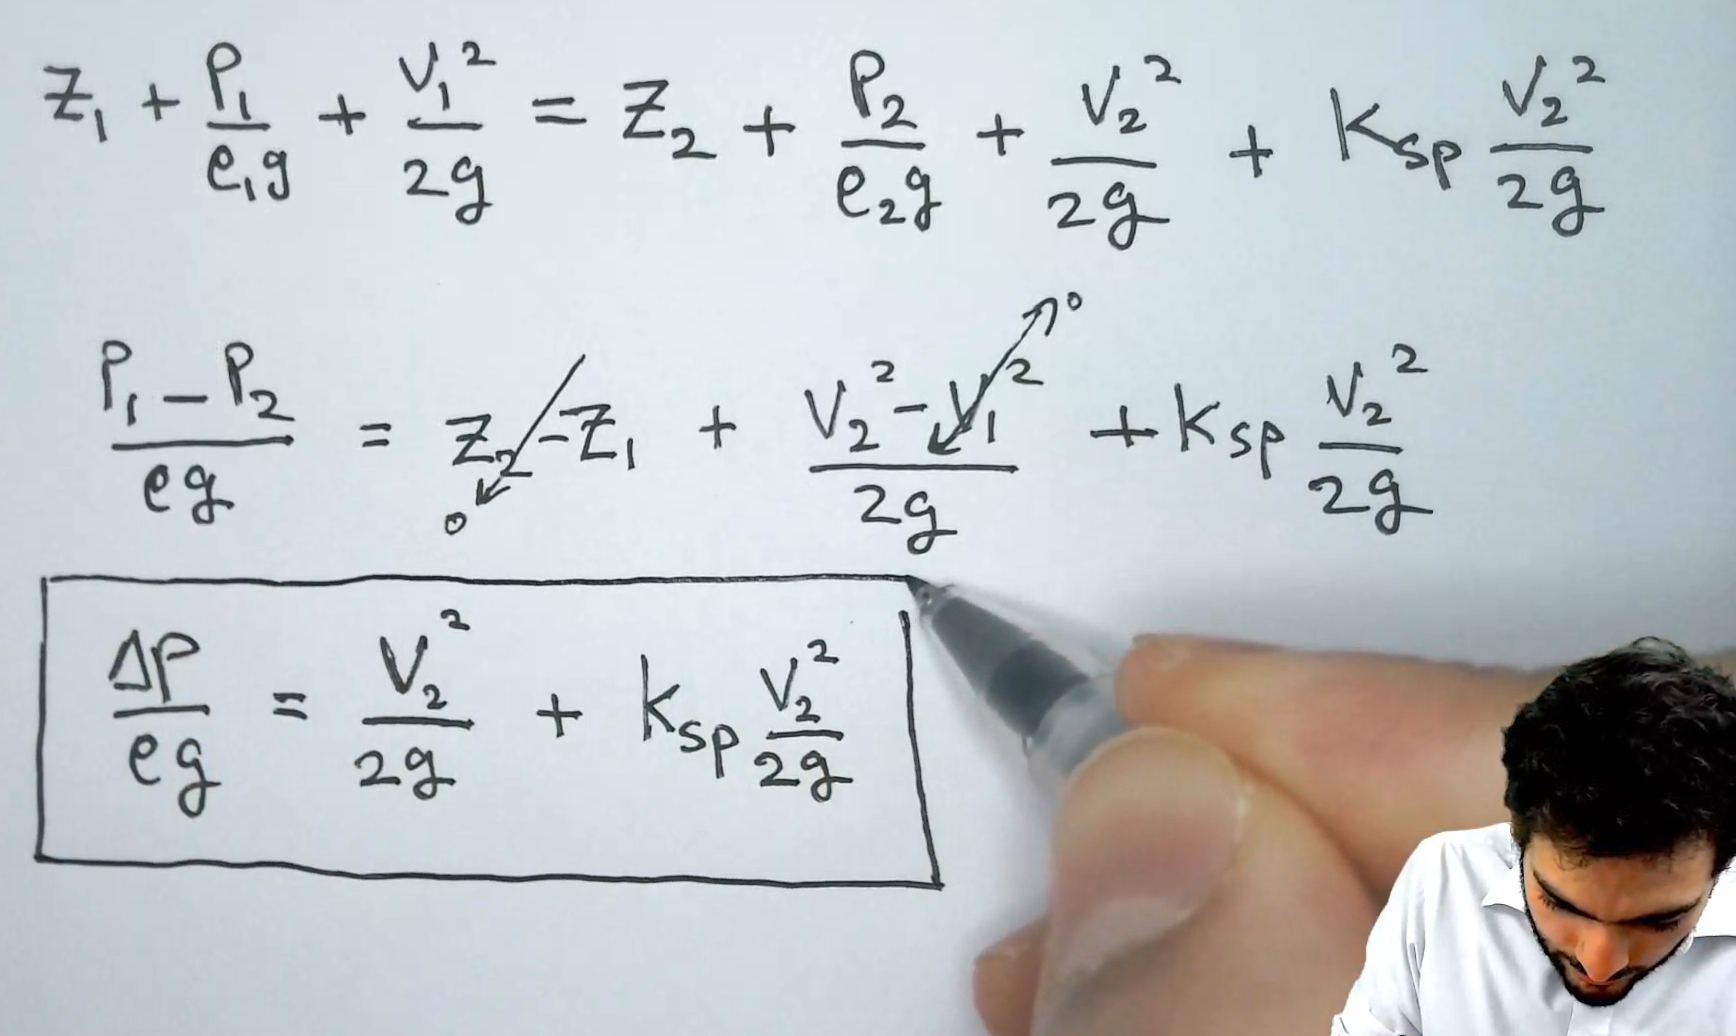 Z₁ + P₁/ρ₁g + V₁²/2g = Z₂ + P₂/ρ₂g + V₂²/2g + Ksp V₂²/2g
P₁ - P₂/ρg = Z₂ - Z₁ + V₂² - V₁²/2g + Ksp V₂²/2g
0 0
ΔP/ρg = V₂²/2g + Ksp V₂²/2g